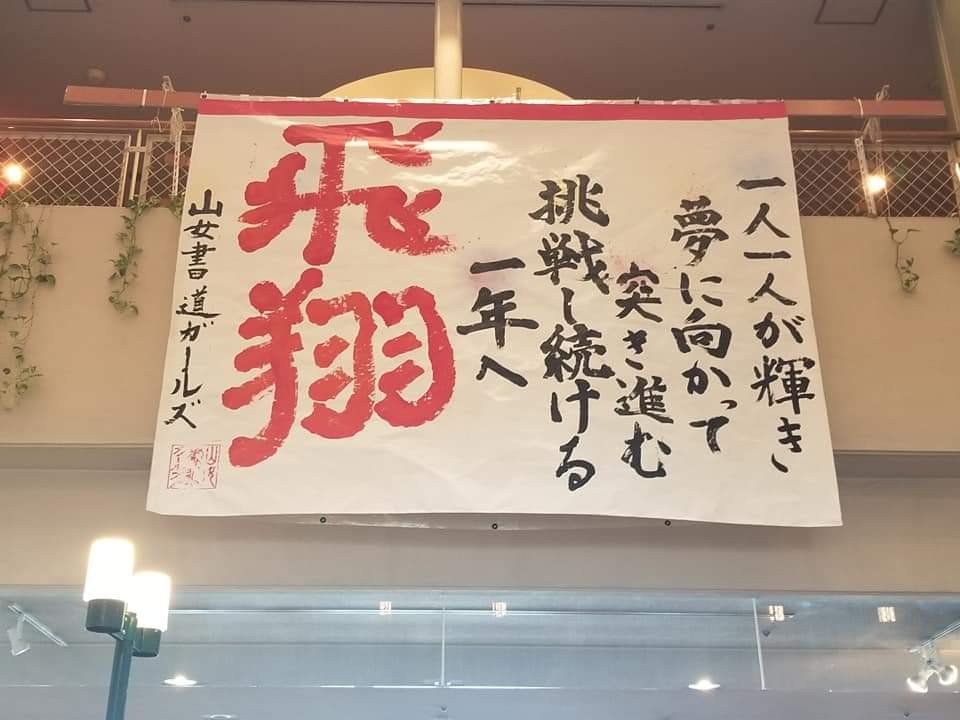 一人一人が輝き
夢に向かって
突き進む
挑戦し続ける
一年へ
飛翔
山女書道ガールズ